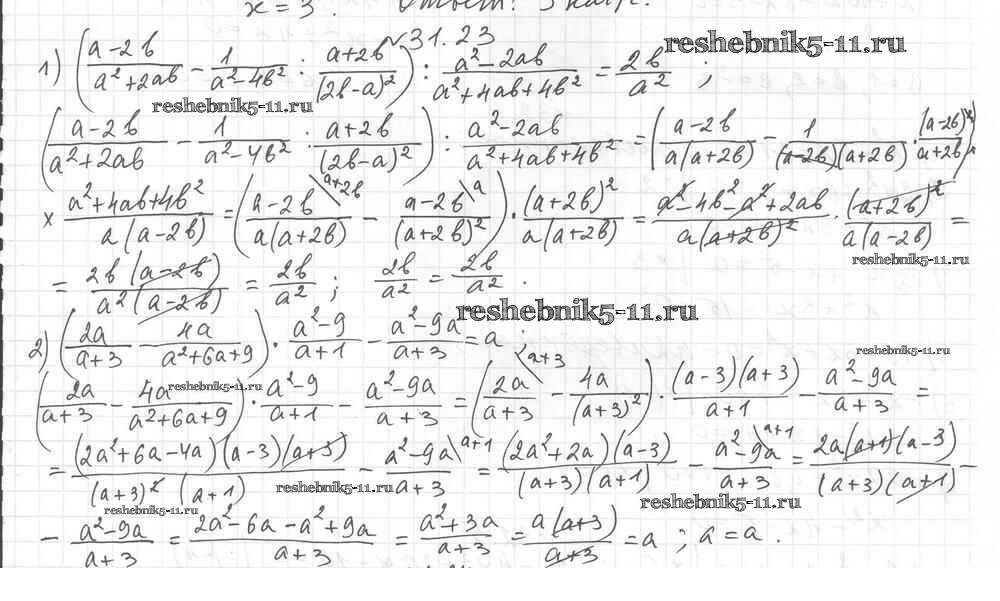 x = 3. Ответ: 3 км/г.
√31.23
1) ((a-2b)/(a²+2ab) - 1/(a²-4b²) : (a+2b)/(2b-a)²) : (a²-2ab)/(a²+4ab+4b²) = 2b/a² ;
reshebnik5-11.ru
reshebnik5-11.ru
((a-2b)/(a²+2ab) - 1/(a²-4b²) : (a+2b)/(2b-a)²) : (a²-2ab)/(a²+4ab+4b²) = ((a-2b)/(a(a+2b)) - 1/((a-2b)(a+2b)) · (a-2b)²/(a+2b)) ×
× (a²+4ab+4b²)/(a(a-2b)) = ((a-2b)/(a(a+2b)) \a+2b - (a-2b)/(a+2b)² \a) · (a+2b)²/(a(a+2b)) = (a²-4b²-a²+2ab)/(a(a+2b)²) · (a+2b)²/(a(a-2b)) =
reshebnik5-11.ru
= 2b(a-2b)/(a²(a-2b)) = 2b/a² ; 2b/a² = 2b/a² .
reshebnik5-11.ru
2) (2a/(a+3) - 4a/(a²+6a+9)) · (a²-9)/(a+1) - (a²-9a)/(a+3) = a ;
reshebnik5-11.ru
reshebnik5-11.ru
(2a/(a+3) - 4a/(a²+6a+9)) · (a²-9)/(a+1) - (a²-9a)/(a+3) = (2a/(a+3) \a+3 - 4a/(a+3)²) · (a-3)(a+3)/(a+1) - (a²-9a)/(a+3) =
= (2a²+6a-4a)(a-3)(a+3)/((a+3)²(a+1)) - (a²-9a)/(a+3) \a+1 = (2a²+2a)(a-3)/((a+3)(a+1)) - (a²-9a)/(a+3) \a+1 = 2a(a+1)(a-3)/((a+3)(a+1)) -
reshebnik5-11.ru
reshebnik5-11.ru
reshebnik5-11.ru
- (a²-9a)/(a+3) = (2a²-6a-a²+9a)/(a+3) = (a²+3a)/(a+3) = a(a+3)/(a+3) = a ; a = a .